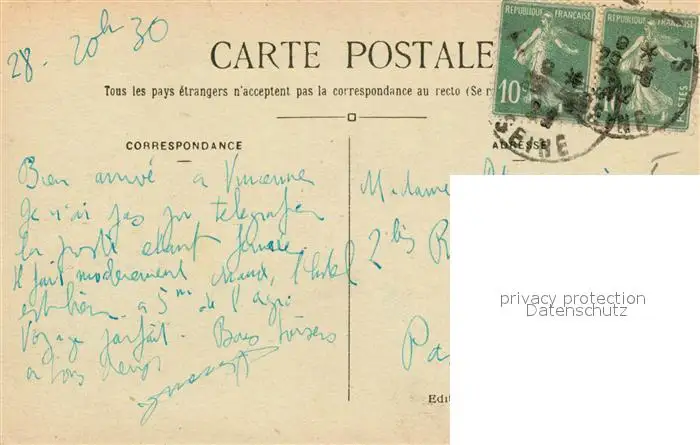 28. 20h 30
CARTE POSTALE
Tous les pays étrangers n'acceptent pas la correspondance au recto (Se r
REPUBLIQUE FRANÇAISE
REPUBLIQUE FRANÇAISE
10c
POSTES
SEINE
CORRESPONDANCE
ADRESSE
Bien arrivé a Vincennes
Je n'ai pas pu telegrafier
la poste etant fermée.
Il fait moderement chaud, l'hotel
est bien a 5m de l'
Voyage parfait. Bons baisers
a tous deux
Madame
2 bis R
Pa
Edi
privacy protection
Datenschutz